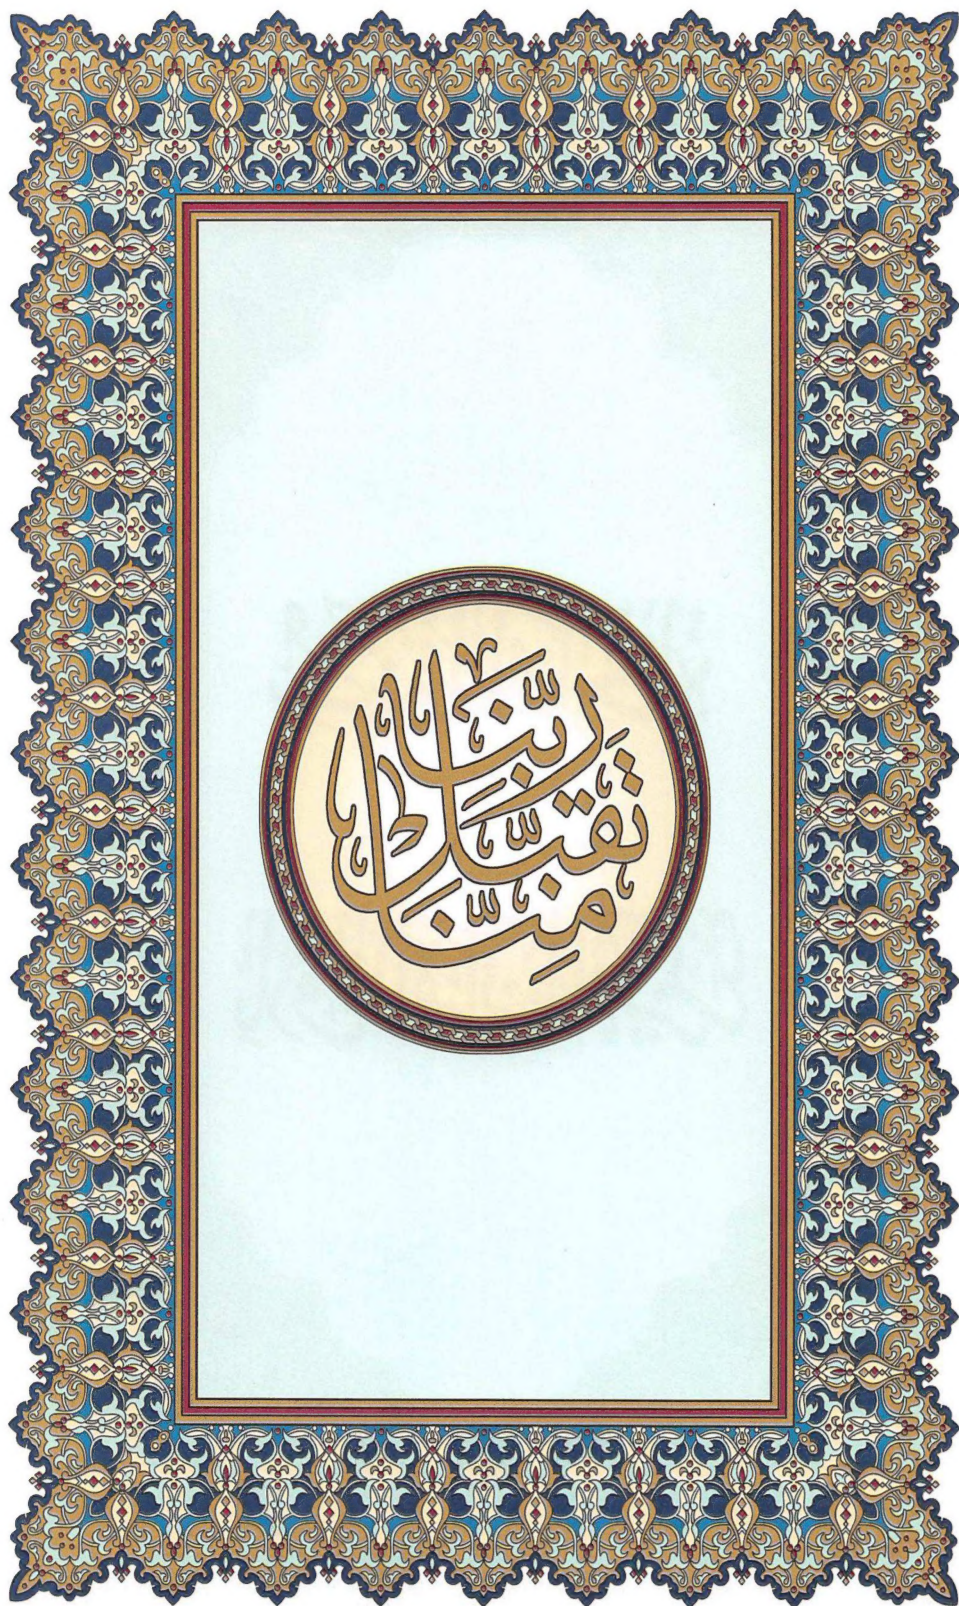 رَبَّنَا
تَقَبَّلْ
مِنَّا